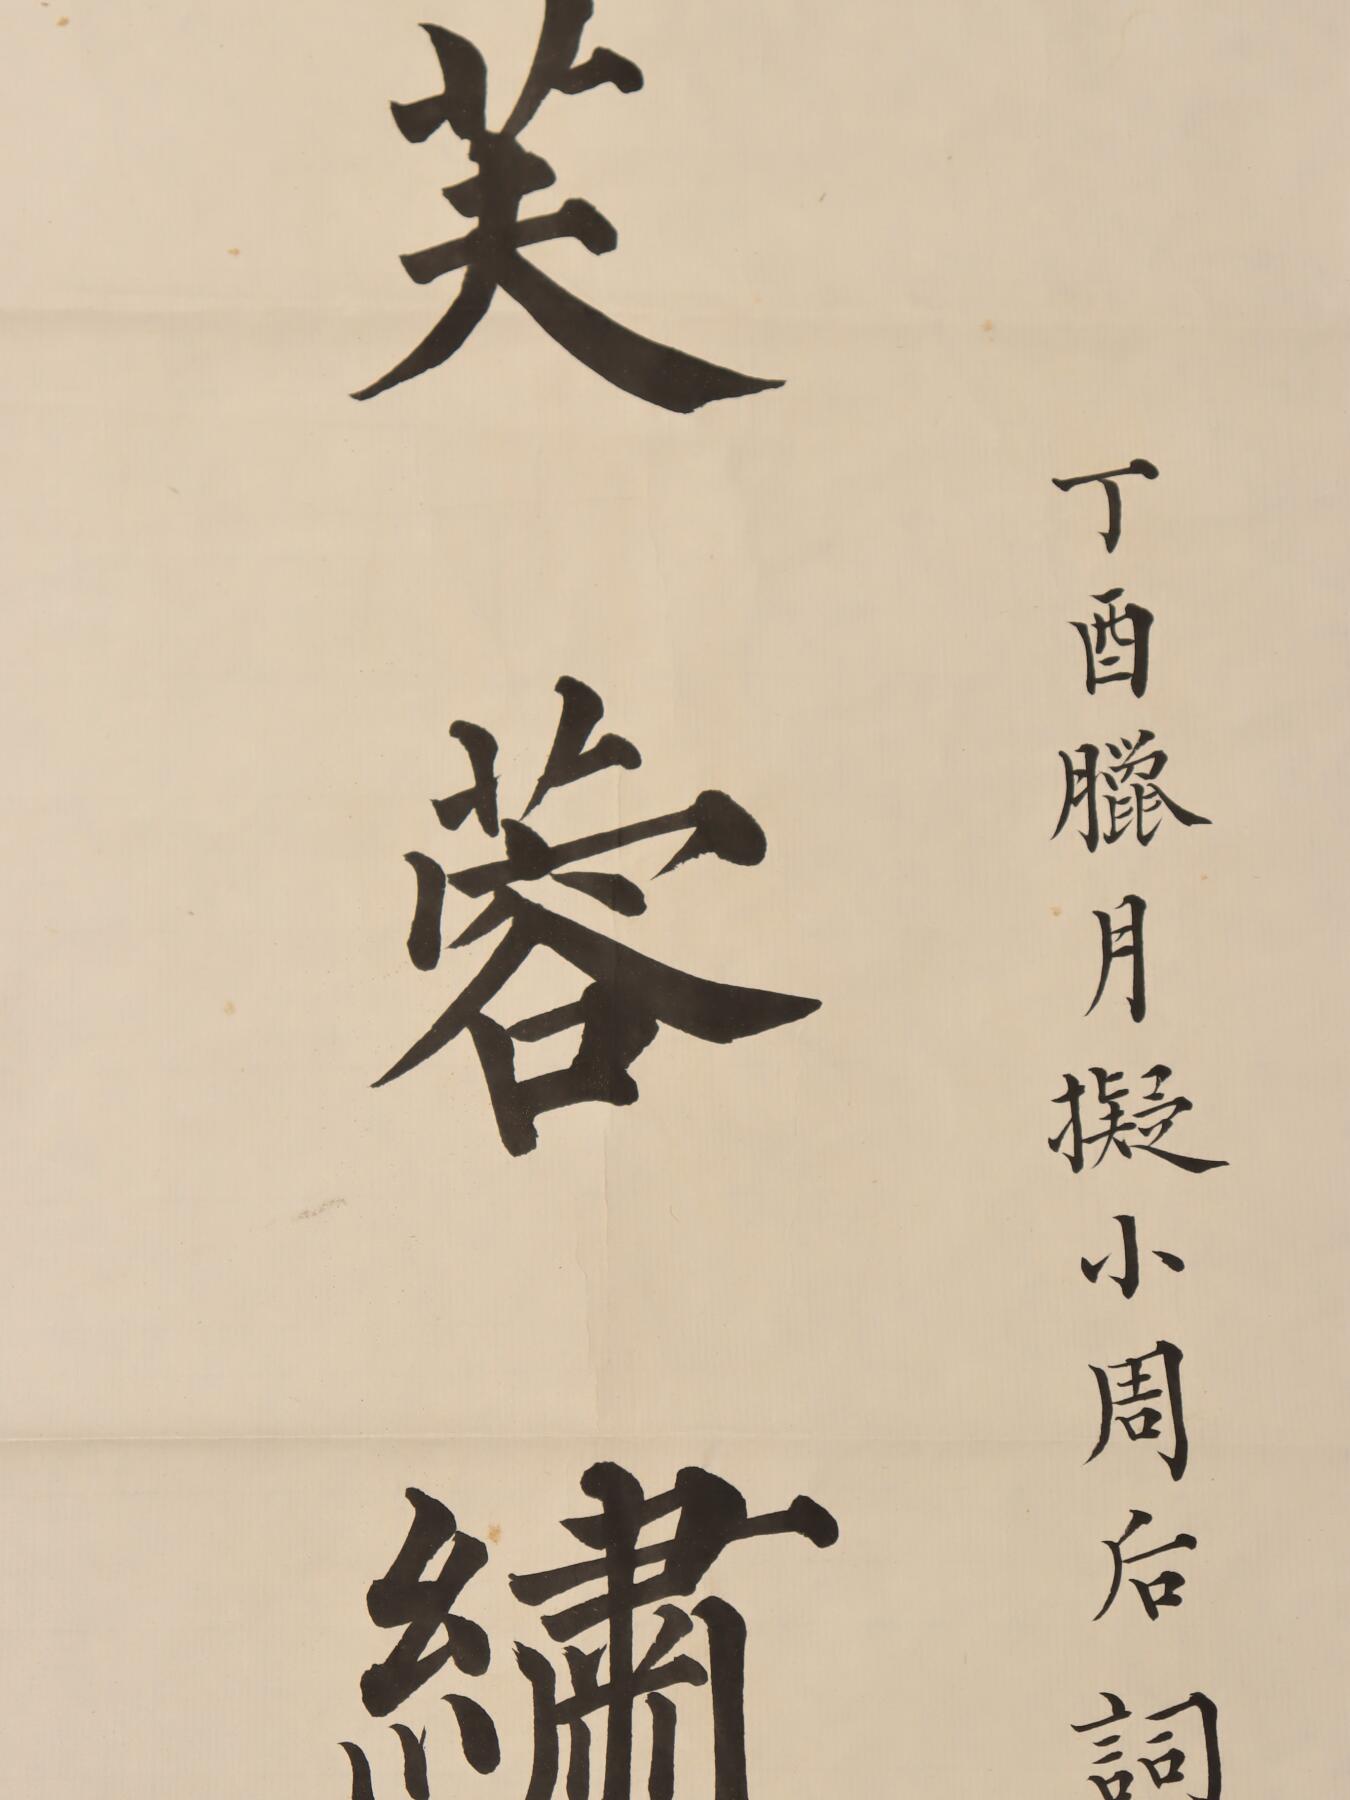 丁酉臘月擬小周后詞
芙蓉繡